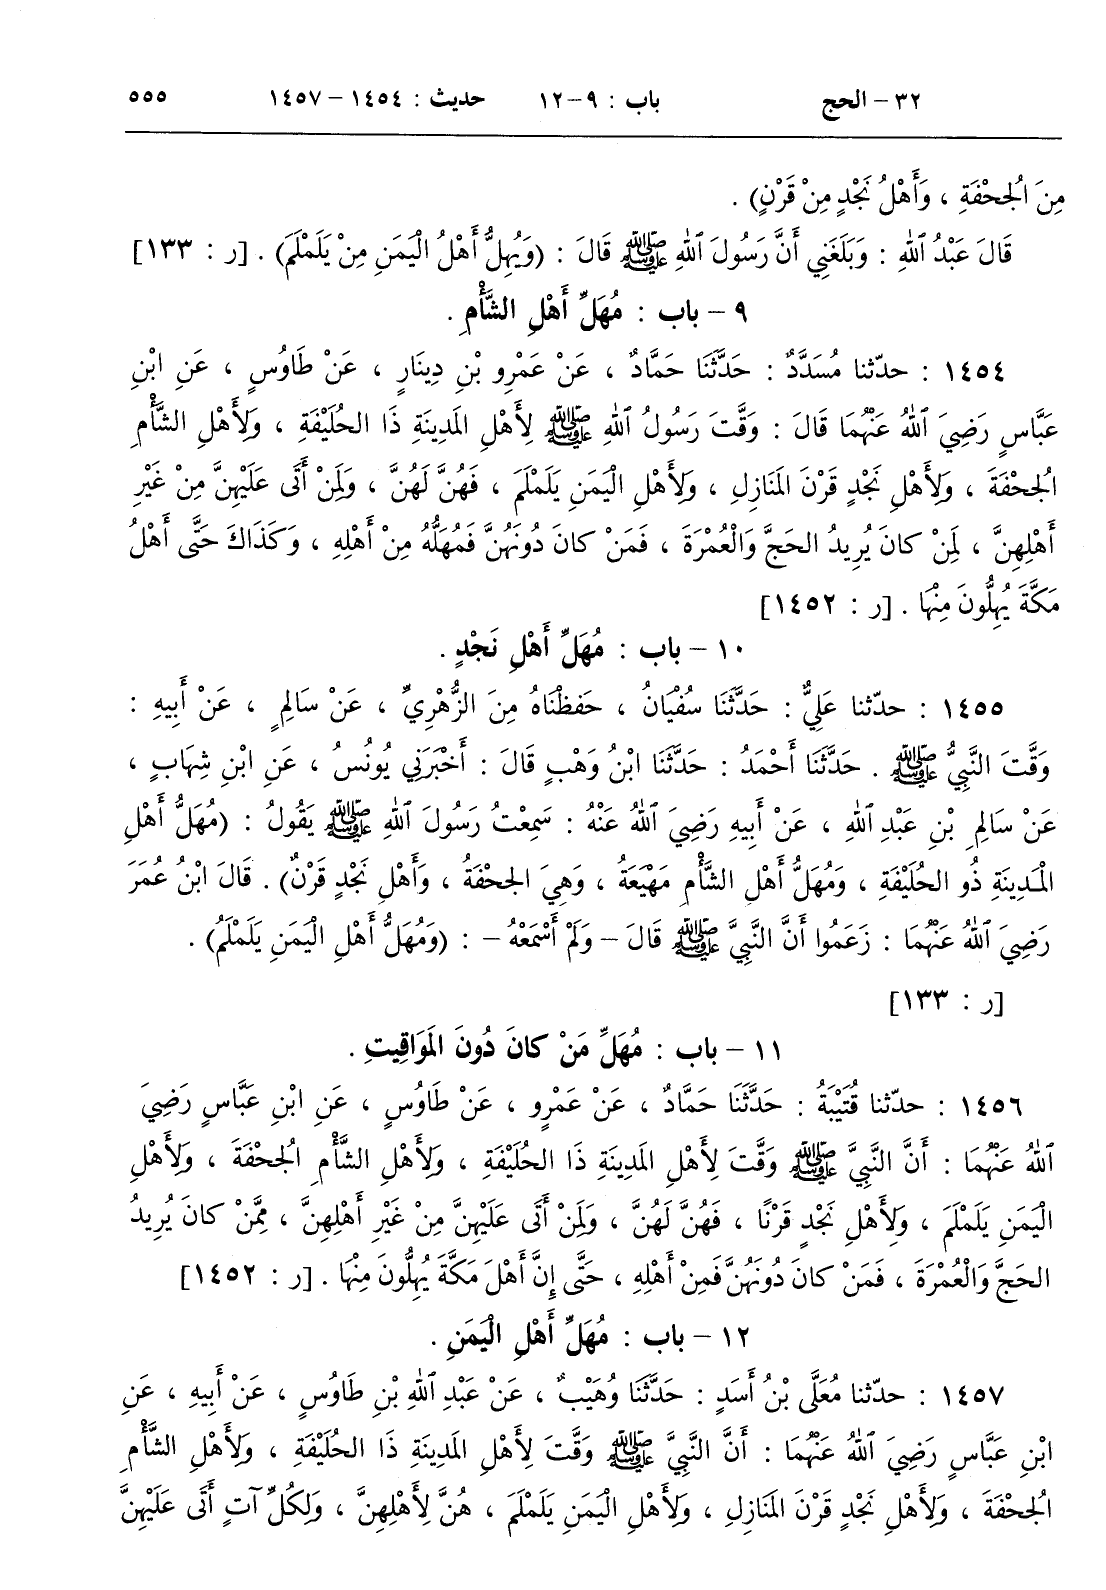 ٣٢ – الحج باب : ٩–١٢ حديث : ١٤٥٤ – ١٤٥٧ ٥٥٥
مِنَ الجُحْفَةِ ، وَأَهْلُ نَجْدٍ مِنْ قَرْنٍ) .
قَالَ عَبْدُ ٱللهِ : وَبَلَغَنِي أَنَّ رَسُولَ ٱللهِ ﷺ قَالَ : (وَيُهِلُّ أَهْلُ الْيَمَنِ مِنْ يَلَمْلَمَ) . [ر : ١٣٣]
٩ – باب : مُهَلِّ أَهْلِ الشَّأْمِ .
١٤٥٤ : حدّثنا مُسَدَّدٌ : حَدَّثَنَا حَمَّادٌ ، عَنْ عَمْرِو بْنِ دِينَارٍ ، عَنْ طَاوُسٍ ، عَنِ ابْنِ
عَبَّاسٍ رَضِيَ ٱللهُ عَنْهُمَا قَالَ : وَقَّتَ رَسُولُ ٱللهِ ﷺ لِأَهْلِ المَدِينَةِ ذَا الحُلَيْفَةِ ، وَلِأَهْلِ الشَّأْمِ
الجُحْفَةَ ، وَلِأَهْلِ نَجْدٍ قَرْنَ المَنَازِلِ ، وَلِأَهْلِ الْيَمَنِ يَلَمْلَمَ ، فَهُنَّ لَهُنَّ ، وَلِمَنْ أَتَى عَلَيْهِنَّ مِنْ غَيْرِ
أَهْلِهِنَّ ، لِمَنْ كانَ يُرِيدُ الحَجَّ وَالْعُمْرَةَ ، فَمَنْ كانَ دُونَهُنَّ فَمُهَلُّهُ مِنْ أَهْلِهِ ، وَكَذَاكَ حَتَّى أَهْلُ
مَكَّةَ يُهِلُّونَ مِنْهَا . [ر : ١٤٥٢]
١٠ – باب : مُهَلِّ أَهْلِ نَجْدٍ .
١٤٥٥ : حدّثنا عَلِيٌّ : حَدَّثَنَا سُفْيَانُ ، حَفِظْنَاهُ مِنَ الزُّهْرِيِّ ، عَنْ سَالِمٍ ، عَنْ أَبِيهِ :
وَقَّتَ النَّبِيُّ ﷺ . حَدَّثَنَا أَحْمَدُ : حَدَّثَنَا ابْنُ وَهْبٍ قَالَ : أَخْبَرَنِي يُونُسُ ، عَنِ ابْنِ شِهَابٍ ،
عَنْ سَالِمِ بْنِ عَبْدِ ٱللهِ ، عَنْ أَبِيهِ رَضِيَ ٱللهُ عَنْهُ : سَمِعْتُ رَسُولَ ٱللهِ ﷺ يَقُولُ : (مُهَلُّ أَهْلِ
المَدِينَةِ ذُو الحُلَيْفَةِ ، وَمُهَلُّ أَهْلِ الشَّأْمِ مَهْيَعَةُ ، وَهِيَ الجُحْفَةُ ، وَأَهْلِ نَجْدٍ قَرْنٌ) . قَالَ ابْنُ عُمَرَ
رَضِيَ ٱللهُ عَنْهُمَا : زَعَمُوا أَنَّ النَّبِيَّ ﷺ قَالَ – وَلَمْ أَسْمَعْهُ – : (وَمُهَلُّ أَهْلِ الْيَمَنِ يَلَمْلَمُ) .
[ر : ١٣٣]
١١ – باب : مُهَلِّ مَنْ كانَ دُونَ المَوَاقِيتِ .
١٤٥٦ : حدّثنا قُتَيْبَةُ : حَدَّثَنَا حَمَّادٌ ، عَنْ عَمْرٍو ، عَنْ طَاوُسٍ ، عَنِ ابْنِ عَبَّاسٍ رَضِيَ
ٱللهُ عَنْهُمَا : أَنَّ النَّبِيَّ ﷺ وَقَّتَ لِأَهْلِ المَدِينَةِ ذَا الحُلَيْفَةِ ، وَلِأَهْلِ الشَّأْمِ الجُحْفَةَ ، وَلِأَهْلِ
الْيَمَنِ يَلَمْلَمَ ، وَلِأَهْلِ نَجْدٍ قَرْنًا ، فَهُنَّ لَهُنَّ ، وَلِمَنْ أَتَى عَلَيْهِنَّ مِنْ غَيْرِ أَهْلِهِنَّ ، مِمَّنْ كانَ يُرِيدُ
الحَجَّ وَالْعُمْرَةَ ، فَمَنْ كانَ دُونَهُنَّ فَمِنْ أَهْلِهِ ، حَتَّى إِنَّ أَهْلَ مَكَّةَ يُهِلُّونَ مِنْهَا . [ر : ١٤٥٢]
١٢ – باب : مُهَلِّ أَهْلِ الْيَمَنِ .
١٤٥٧ : حدّثنا مُعَلَّى بْنُ أَسَدٍ : حَدَّثَنَا وُهَيْبٌ ، عَنْ عَبْدِ ٱللهِ بْنِ طَاوُسٍ ، عَنْ أَبِيهِ ، عَنِ
ابْنِ عَبَّاسٍ رَضِيَ ٱللهُ عَنْهُمَا : أَنَّ النَّبِيَّ ﷺ وَقَّتَ لِأَهْلِ المَدِينَةِ ذَا الحُلَيْفَةِ ، وَلِأَهْلِ الشَّأْمِ
الجُحْفَةَ ، وَلِأَهْلِ نَجْدٍ قَرْنَ المَنَازِلِ ، وَلِأَهْلِ الْيَمَنِ يَلَمْلَمَ ، هُنَّ لِأَهْلِهِنَّ ، وَلِكُلِّ آتٍ أَتَى عَلَيْهِنَّ